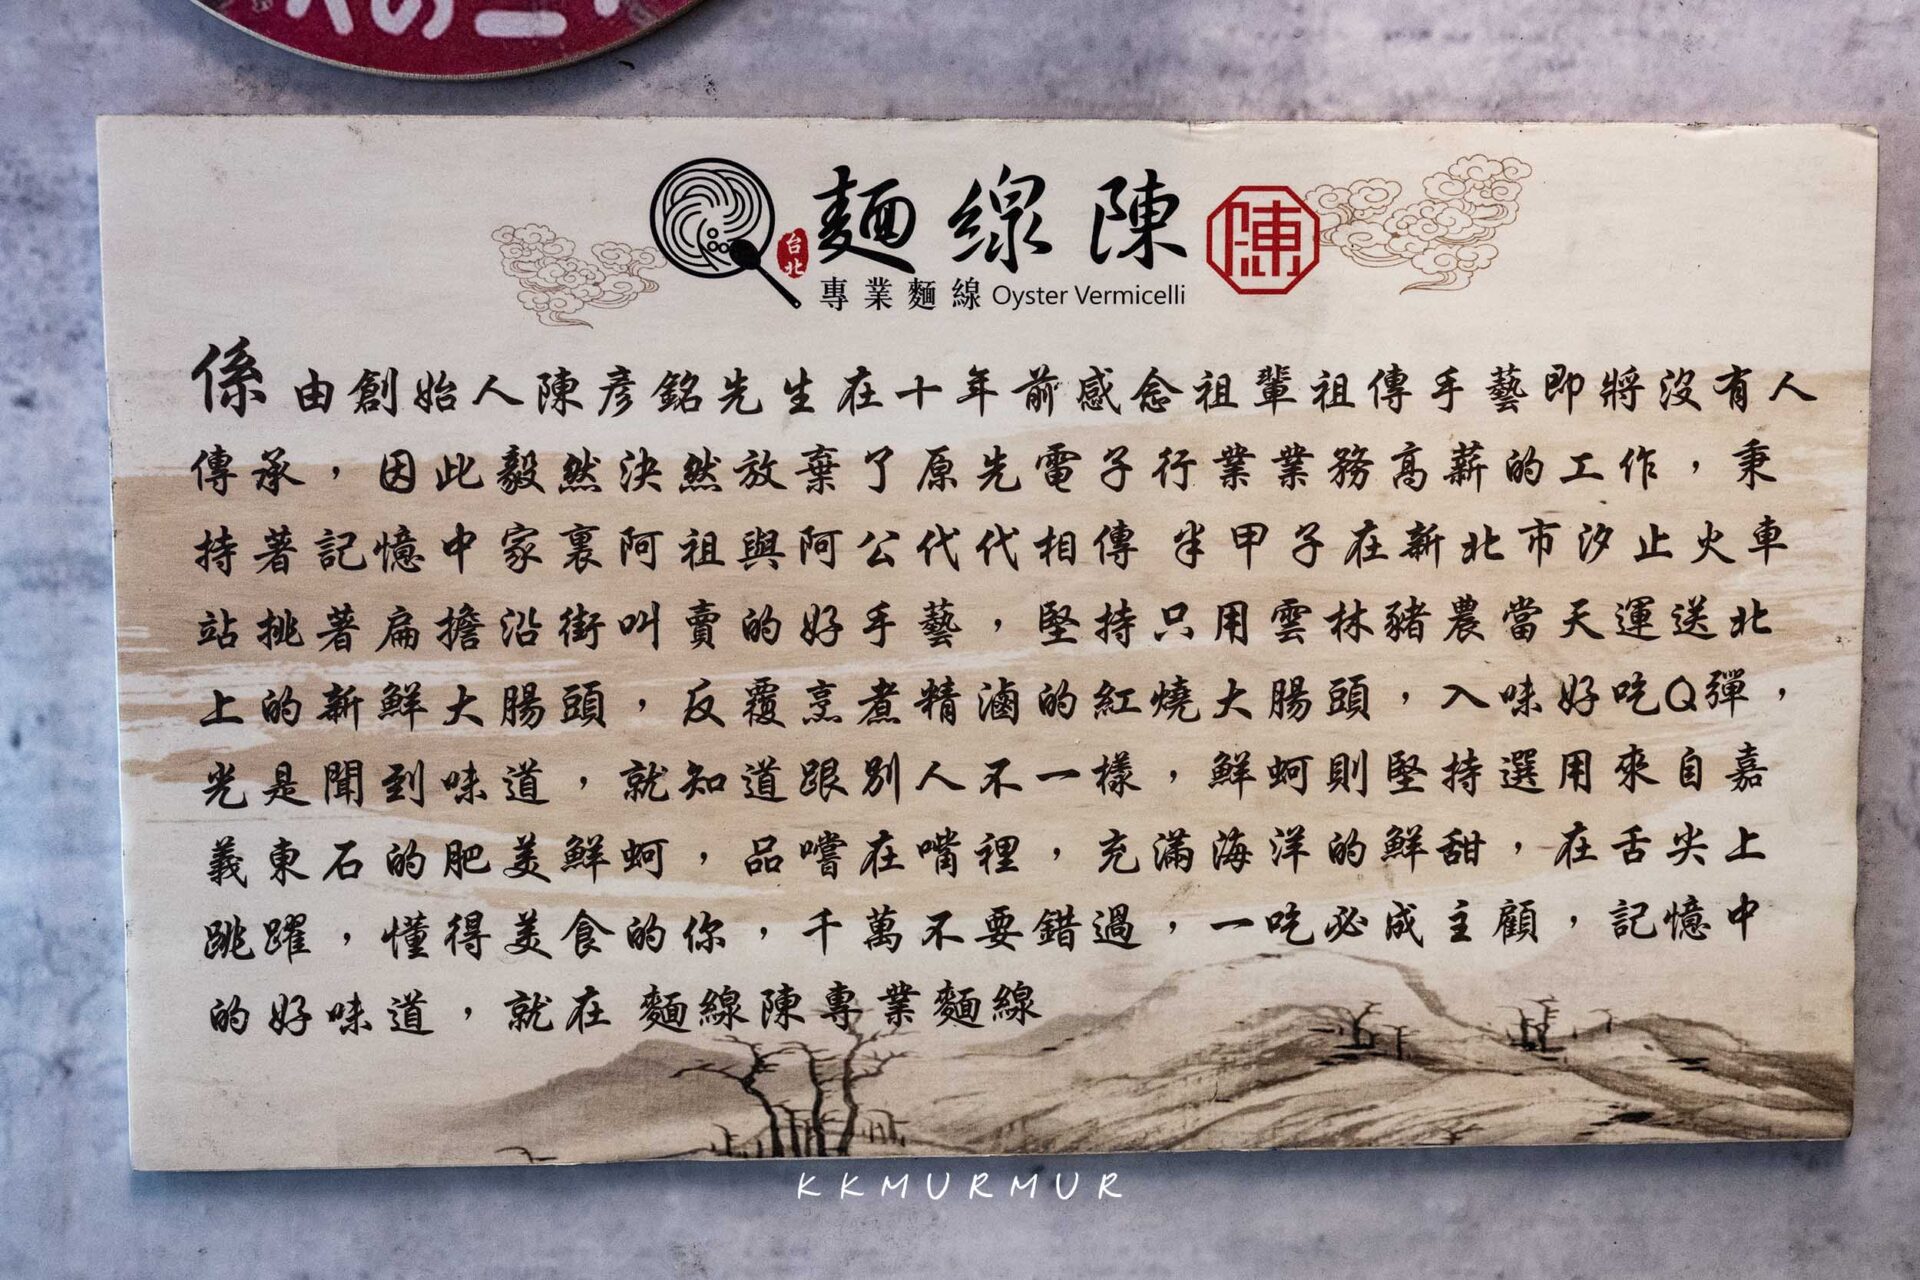 台北
麵線陳
陳
專業麵線 Oyster Vermicelli
係由創始人陳彥銘先生在十年前感念祖輩祖傳手藝即將沒有人
傳承，因此毅然決然放棄了原先電子行業業務高薪的工作，秉
持著記憶中家裏阿祖與阿公代代相傳 半甲子在新北市汐止火車
站挑著扁擔沿街叫賣的好手藝，堅持只用雲林豬農當天運送北
上的新鮮大腸頭，反覆烹煮精滷的紅燒大腸頭，入味好吃Q彈，
光是聞到味道，就知道跟別人不一樣，鮮蚵則堅持選用來自嘉
義東石的肥美鮮蚵，品嚐在嘴裡，充滿海洋的鮮甜，在舌尖上
跳躍，懂得美食的你，千萬不要錯過，一吃必成主顧，記憶中
的好味道，就在 麵線陳專業麵線
KKMURMUR